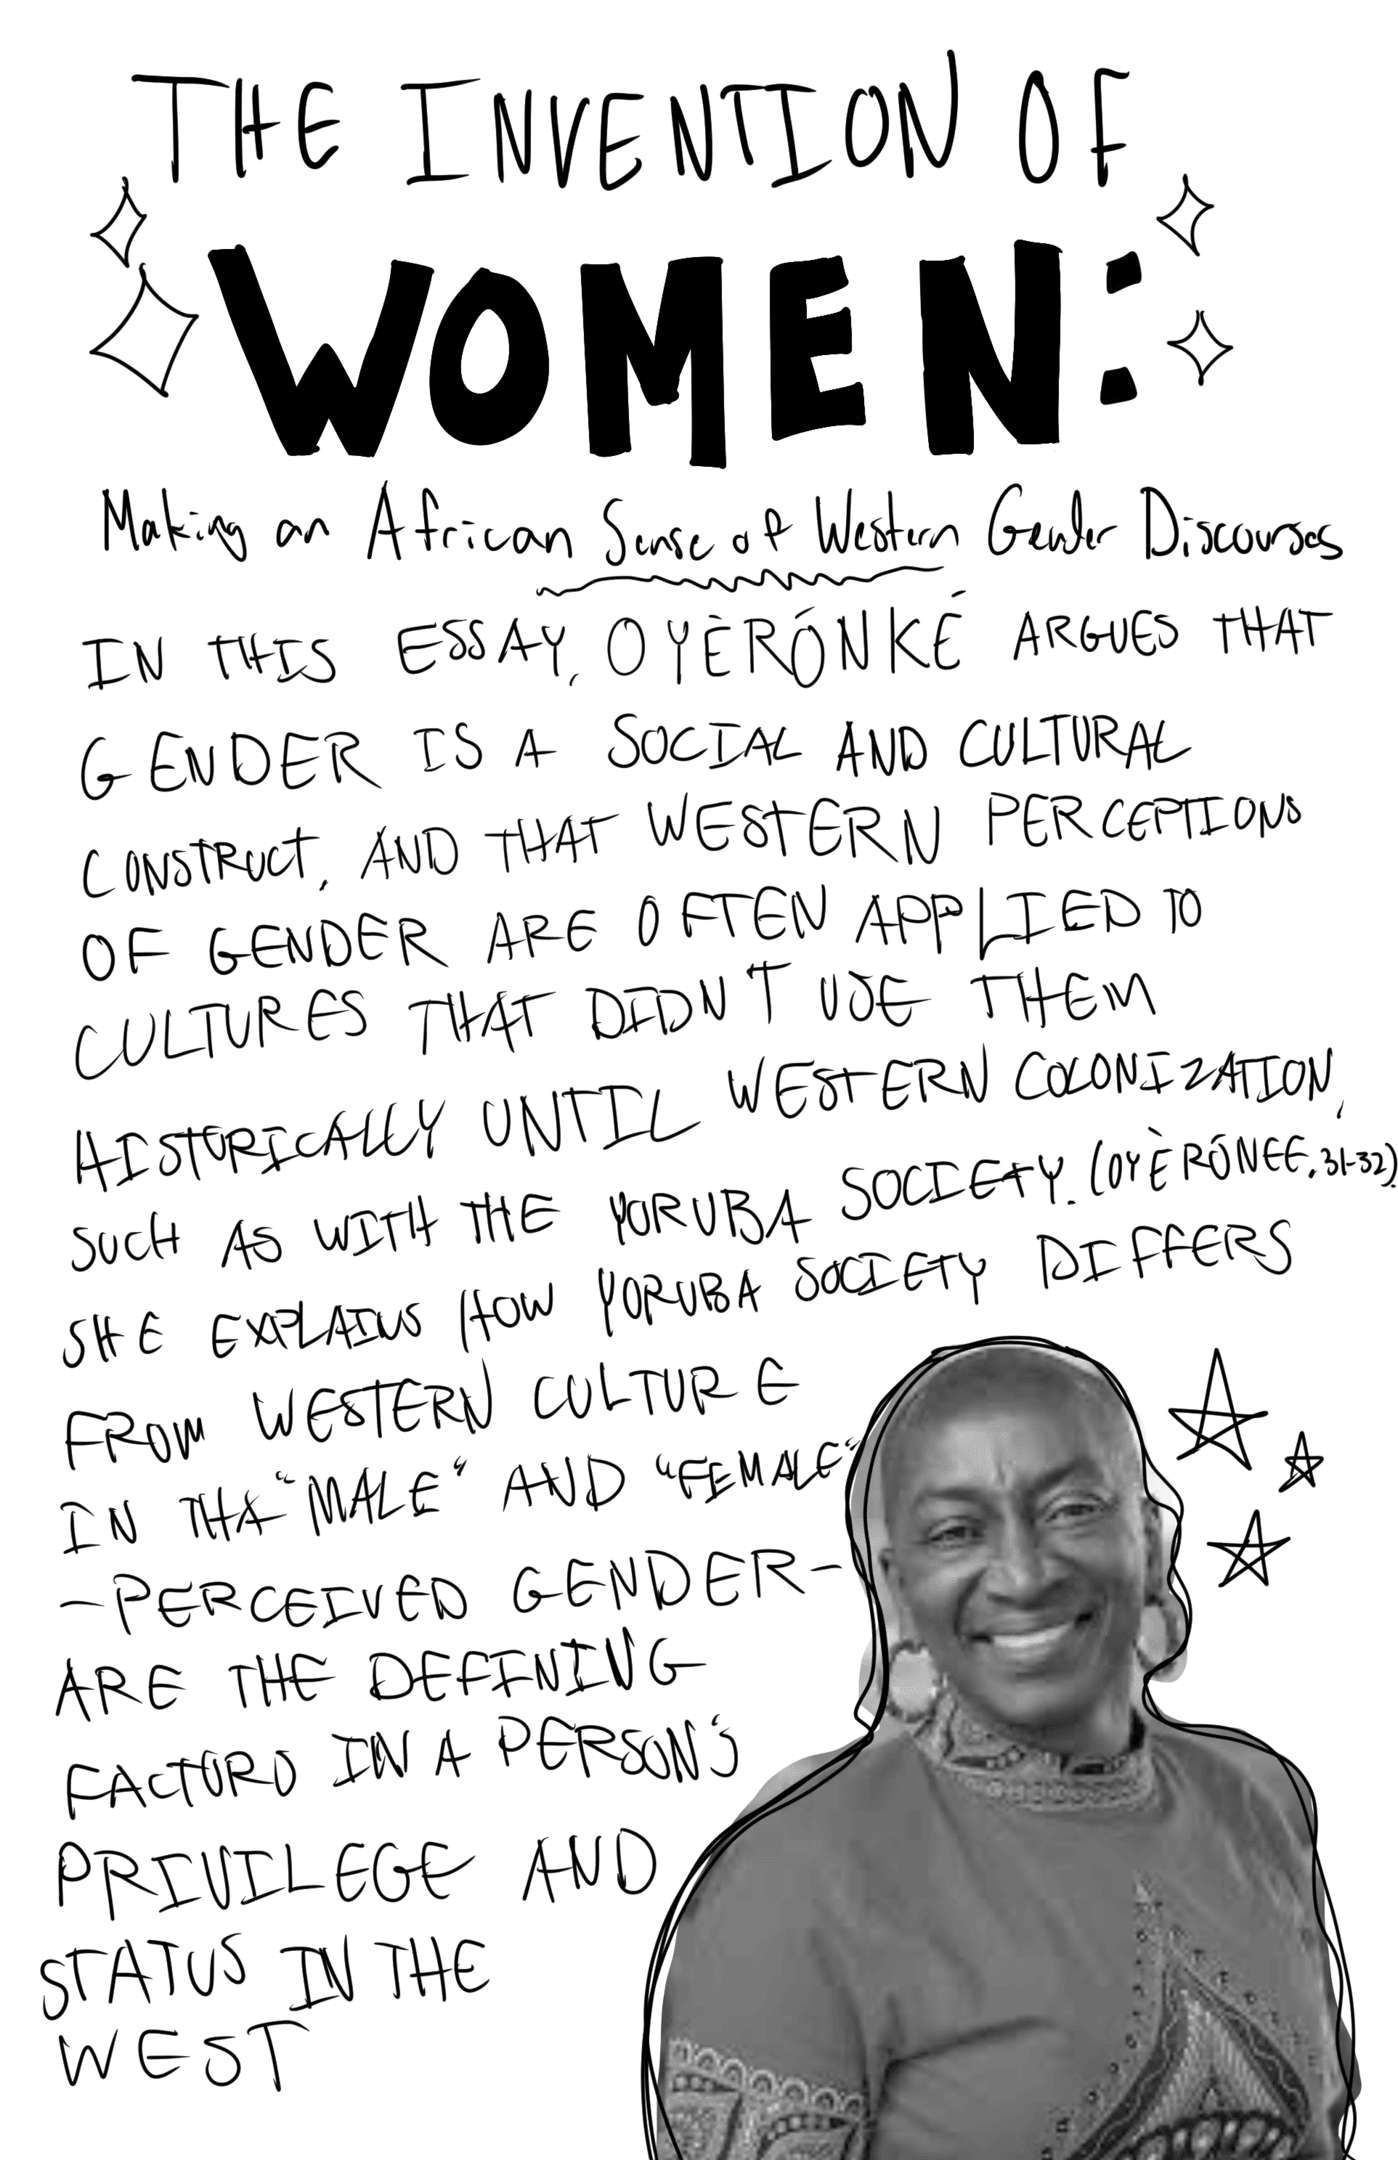 THE INVENTION OF
WOMEN:
Making an African Sense of Western Gender Discourses
IN THIS ESSAY, OYÈRÓNKÉ ARGUES THAT
GENDER IS A SOCIAL AND CULTURAL
CONSTRUCT, AND THAT WESTERN PERCEPTIONS
OF GENDER ARE OFTEN APPLIED TO
CULTURES THAT DIDN'T USE THEM
HISTORICALLY UNTIL WESTERN COLONIZATION,
SUCH AS WITH THE YORUBA SOCIETY. (OYÈRÓNEE, 31-32).
SHE EXPLAINS HOW YORUBA SOCIETY DIFFERS
FROM WESTERN CULTURE
IN THA "MALE" AND "FEMALE"
-PERCEIVED GENDER-
ARE THE DEFINING
FACTORS IN A PERSON'S
PRIVILEGE AND
STATUS IN THE
WEST